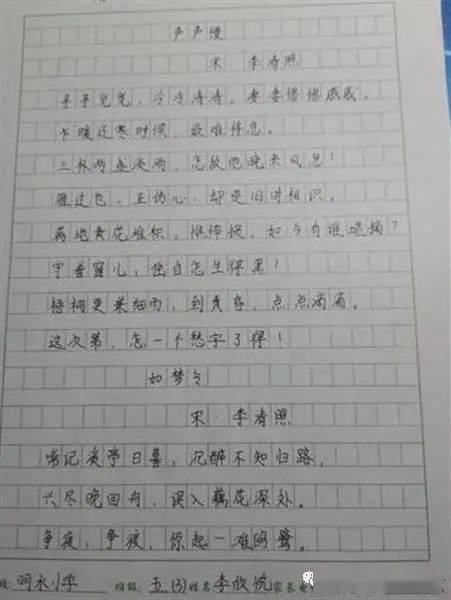 声声慢
宋·李清照
寻寻觅觅，冷冷清清，凄凄惨惨戚戚。
乍暖还寒时候，最难将息。
三杯两盏淡酒，怎敌他晚来风急！
雁过也，正伤心，却是旧时相识。
满地黄花堆积，憔悴损，如今有谁堪摘？
守着窗儿，独自怎生得黑！
梧桐更兼细雨，到黄昏，点点滴滴。
这次第，怎一个愁字了得！
如梦令
宋·李清照
常记溪亭日暮，沉醉不知归路，
兴尽晚回舟，误入藕花深处。
争渡，争渡，惊起一滩鸥鹭。
明水小学 班级：五（3）姓名 李欣悦 家长